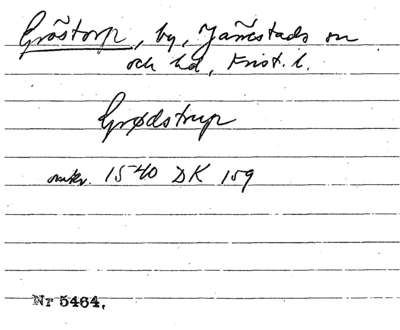 Gröstorp, by, Järrestads sn
och hd, Krist. l.
Grødstrup
omkr. 1540 DK 159
Nr 5464.